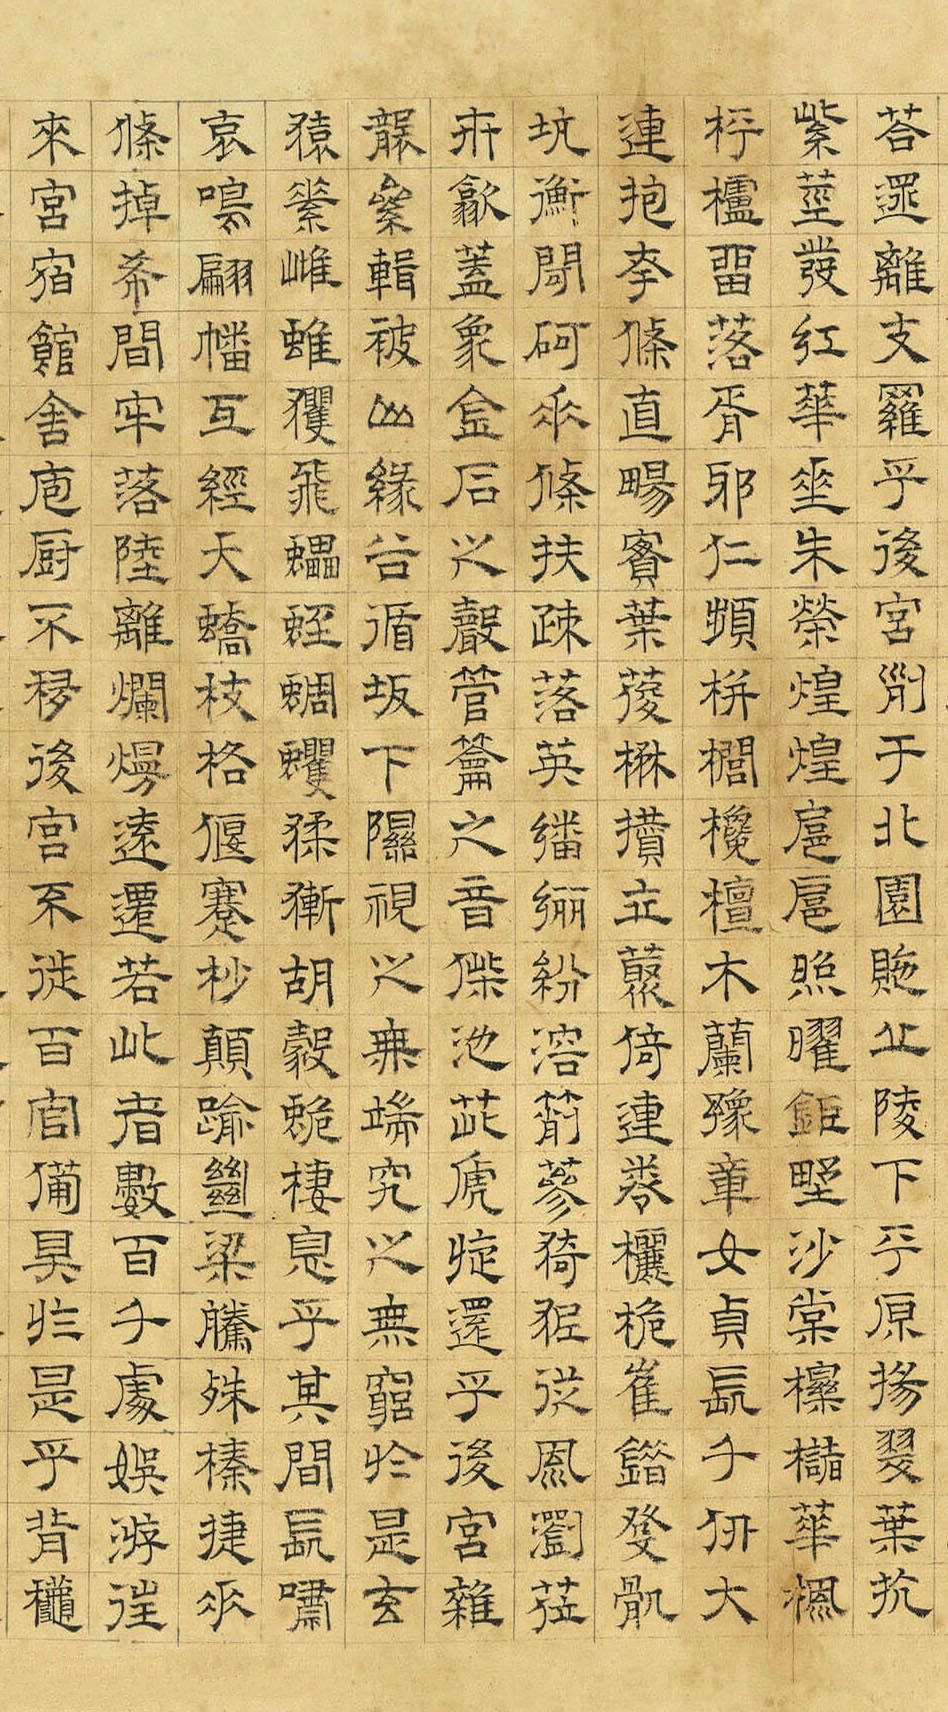 荅遝離支羅乎後宮列于北園貤丘陵下平原揚翠葉扤
紫莖發紅華垂朱榮煌煌扈扈照曜鉅野沙棠櫟櫧華楓
枰櫨留落胥邪仁頻栟櫚欃檀木蘭豫章女貞長千仞大
連抱夸條直暢實葉葰楙攢立叢倚連卷欐佹崔錯登骫
坑衡閜砢垂條扶疎落英繙纚紛溶箾蔘猗狔從風瀏莅
卉歙蓋象金石之聲管籥之音偨池茈虒旋還乎後宮雜
襲絫輯被山緣谷循坂下隰視之無端究之無窮於是玄
猿素雌蜼玃飛蠝蛭蜩蠼猱獑胡縠蛫棲息乎其間長嘯
哀鳴翩幡互經夭蟜枝格偃蹇杪顛踰絕梁騰殊榛捷垂
條掉希間牢落陸離爛熳遠遷若此者數百千處娛游往
來宮宿館舍庖厨不移後宮不徙百官備具於是乎背龝